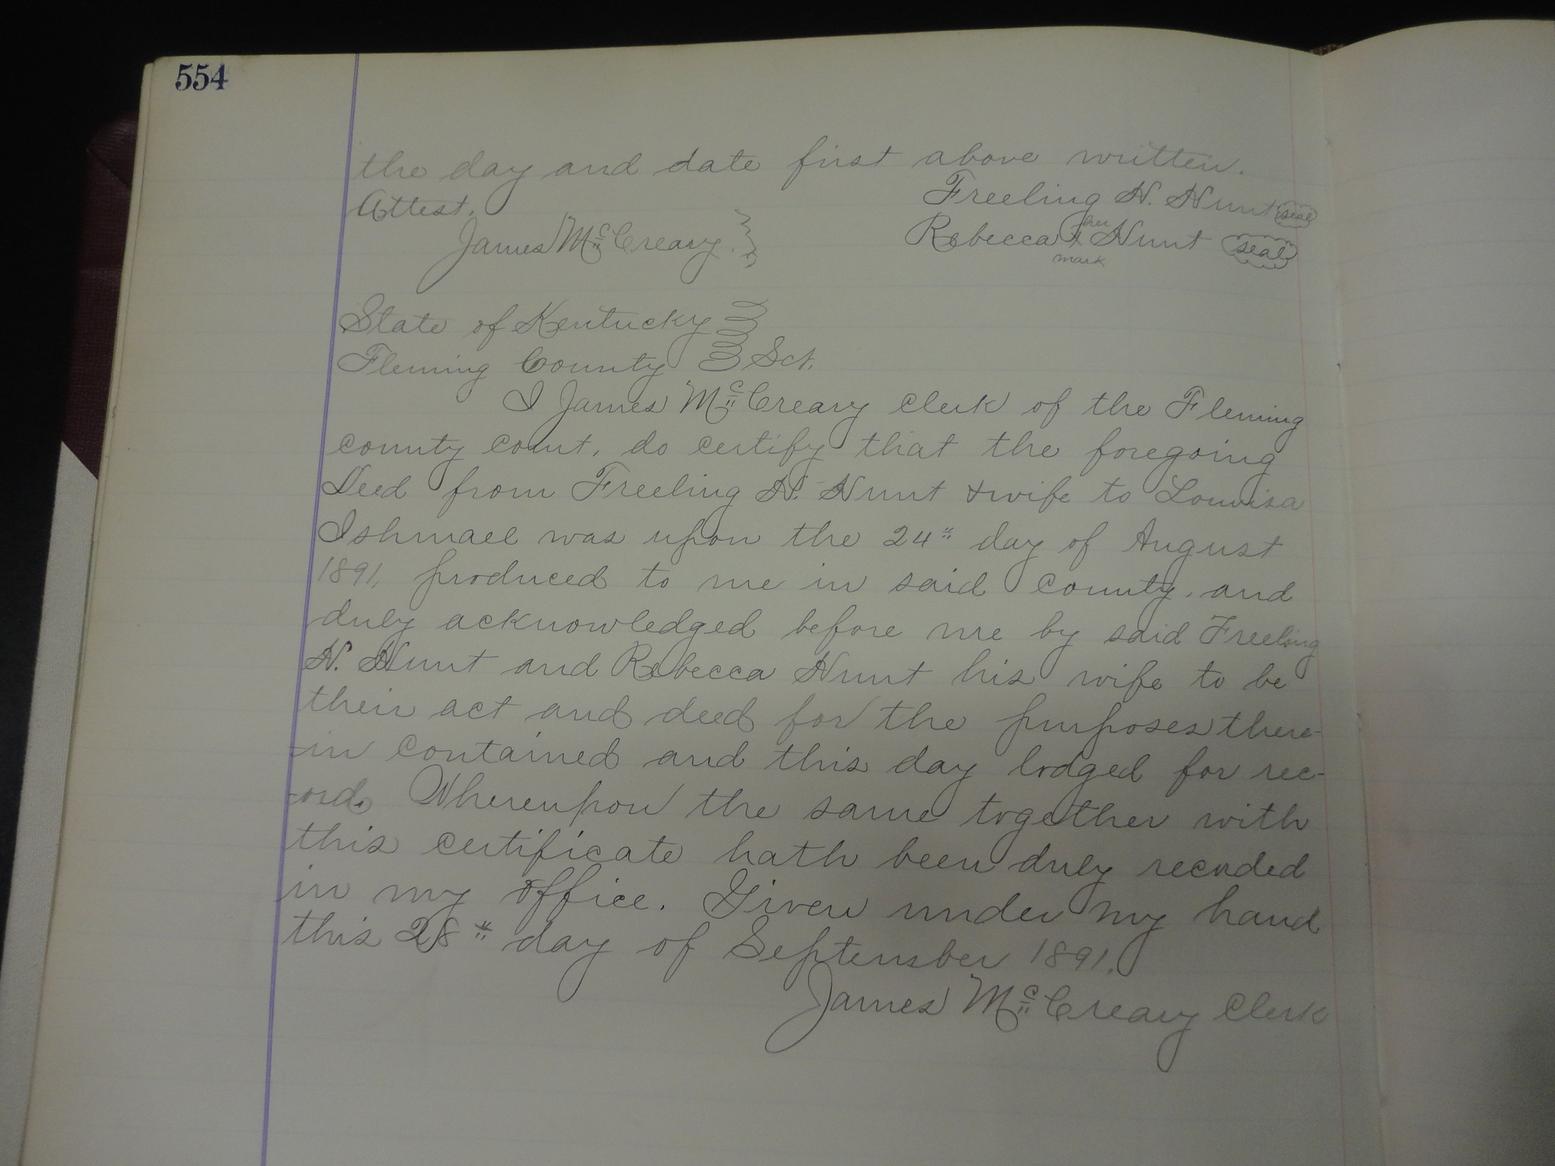 554
the day and date first above written.
Attest. Freeling H. Hunt seal
James McCreary. Rebecca her x mark Hunt seal
State of Kentucky
Fleming County Sct.
I James McCreary clerk of the Fleming
county court, do certify that the foregoing
Deed from Freeling H. Hunt & wife to Louvisa
Ishmael was upon the 24th day of August
1891, produced to me in said county, and
duly acknowledged before me by said Freeling
H. Hunt and Rebecca Hunt his wife to be
their act and deed for the purposes there-
-in contained and this day lodged for rec-
-ord. Whereupon the same together with
this certificate hath been duly recorded
in my office. Given under my hand
this 28th day of September 1891.
James McCreary Clerk